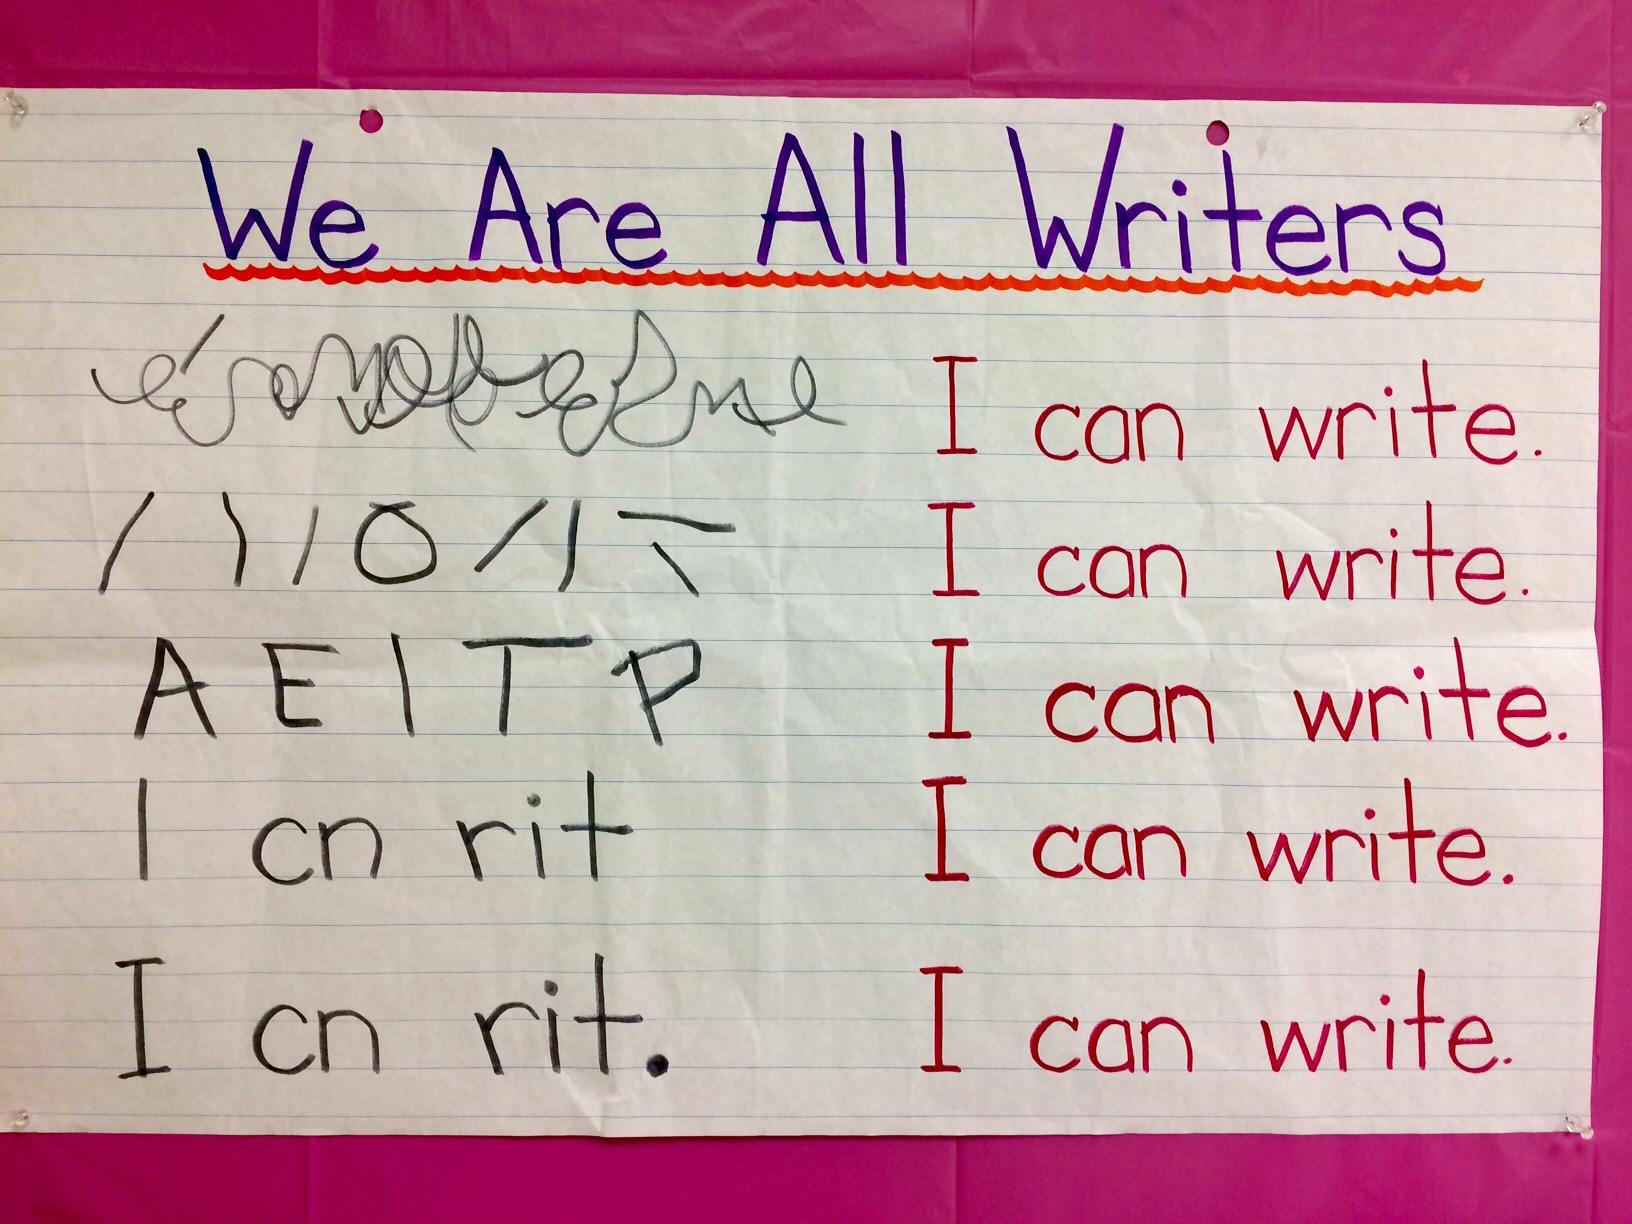 We Are All Writers
I can write.
I can write.
A E I T P I can write.
I cn rit I can write.
I cn rit. I can write.